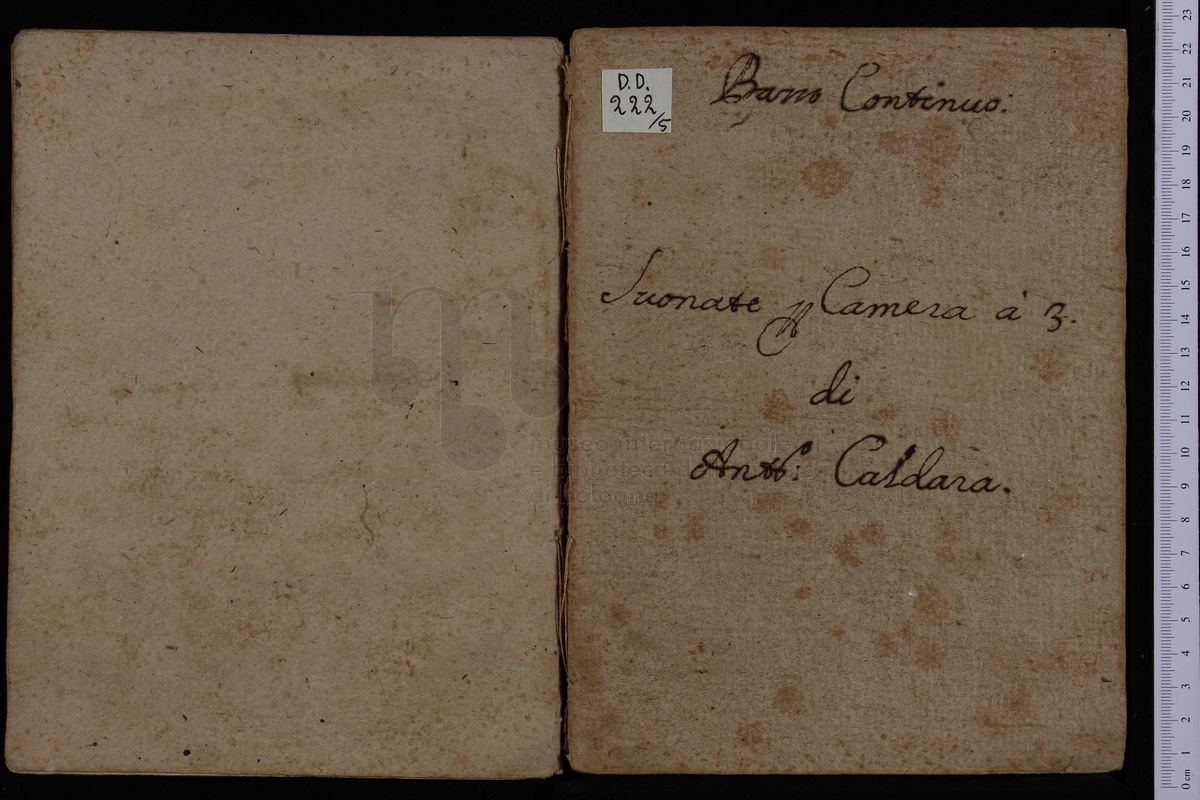 D.D.
222
/5
Basso Continuo:
Suonate p Camera à 3.
di
Antº: Caldara.
museo internazionale
e biblioteca
di bologna
23
22
21
20
19
18
17
16
15
14
13
12
11
10
9
8
7
6
5
4
3
2
1
0 cm